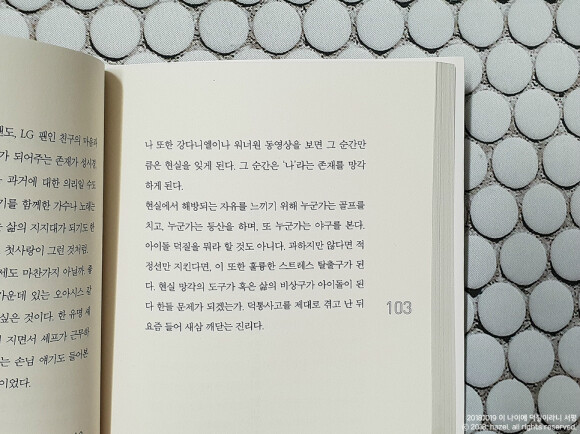 팬도, LG 팬인 친구의 마음과
가 되어주는 존재가 성시경
과거에 대한 의리일 수도
기를 함께한 가수나 노래는
삶의 지지대가 되기도 한
첫사랑이 그런 것처럼.
세도 마찬가지 아닐까 좋
가운데 있는 오아시스 같
싶은 것이다. 한 유명 셰
지면서 셰프가 근무하
는 손님 얘기도 들어본
이었다.
나 또한 강다니엘이나 워너원 동영상을 보면 그 순간만
큼은 현실을 잊게 된다. 그 순간은 '나'라는 존재를 망각
하게 된다.
현실에서 해방되는 자유를 느끼기 위해 누군가는 골프를
치고, 누군가는 등산을 하며, 또 누군가는 야구를 본다.
아이돌 덕질을 뭐라 할 것도 아니다. 과하지만 않다면 적
정선만 지킨다면, 이 또한 훌륭한 스트레스 탈출구가 된
다. 현실 망각의 도구가 혹은 삶의 비상구가 아이돌이 된
다 한들 문제가 되겠는가. 덕통사고를 제대로 겪고 난 뒤
요즘 들어 새삼 깨닫는 진리다.
103
20180019 이 나이에 덕질이라니 서평
© 2018. hazel. all rights reserved.